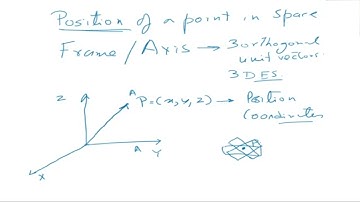 Position of a point in space
Frame / Axis → 3 orthogonal
unit vectors
3 DES
Z
A
P=(x,y,z) → Position
Coordinates
A
Y
X